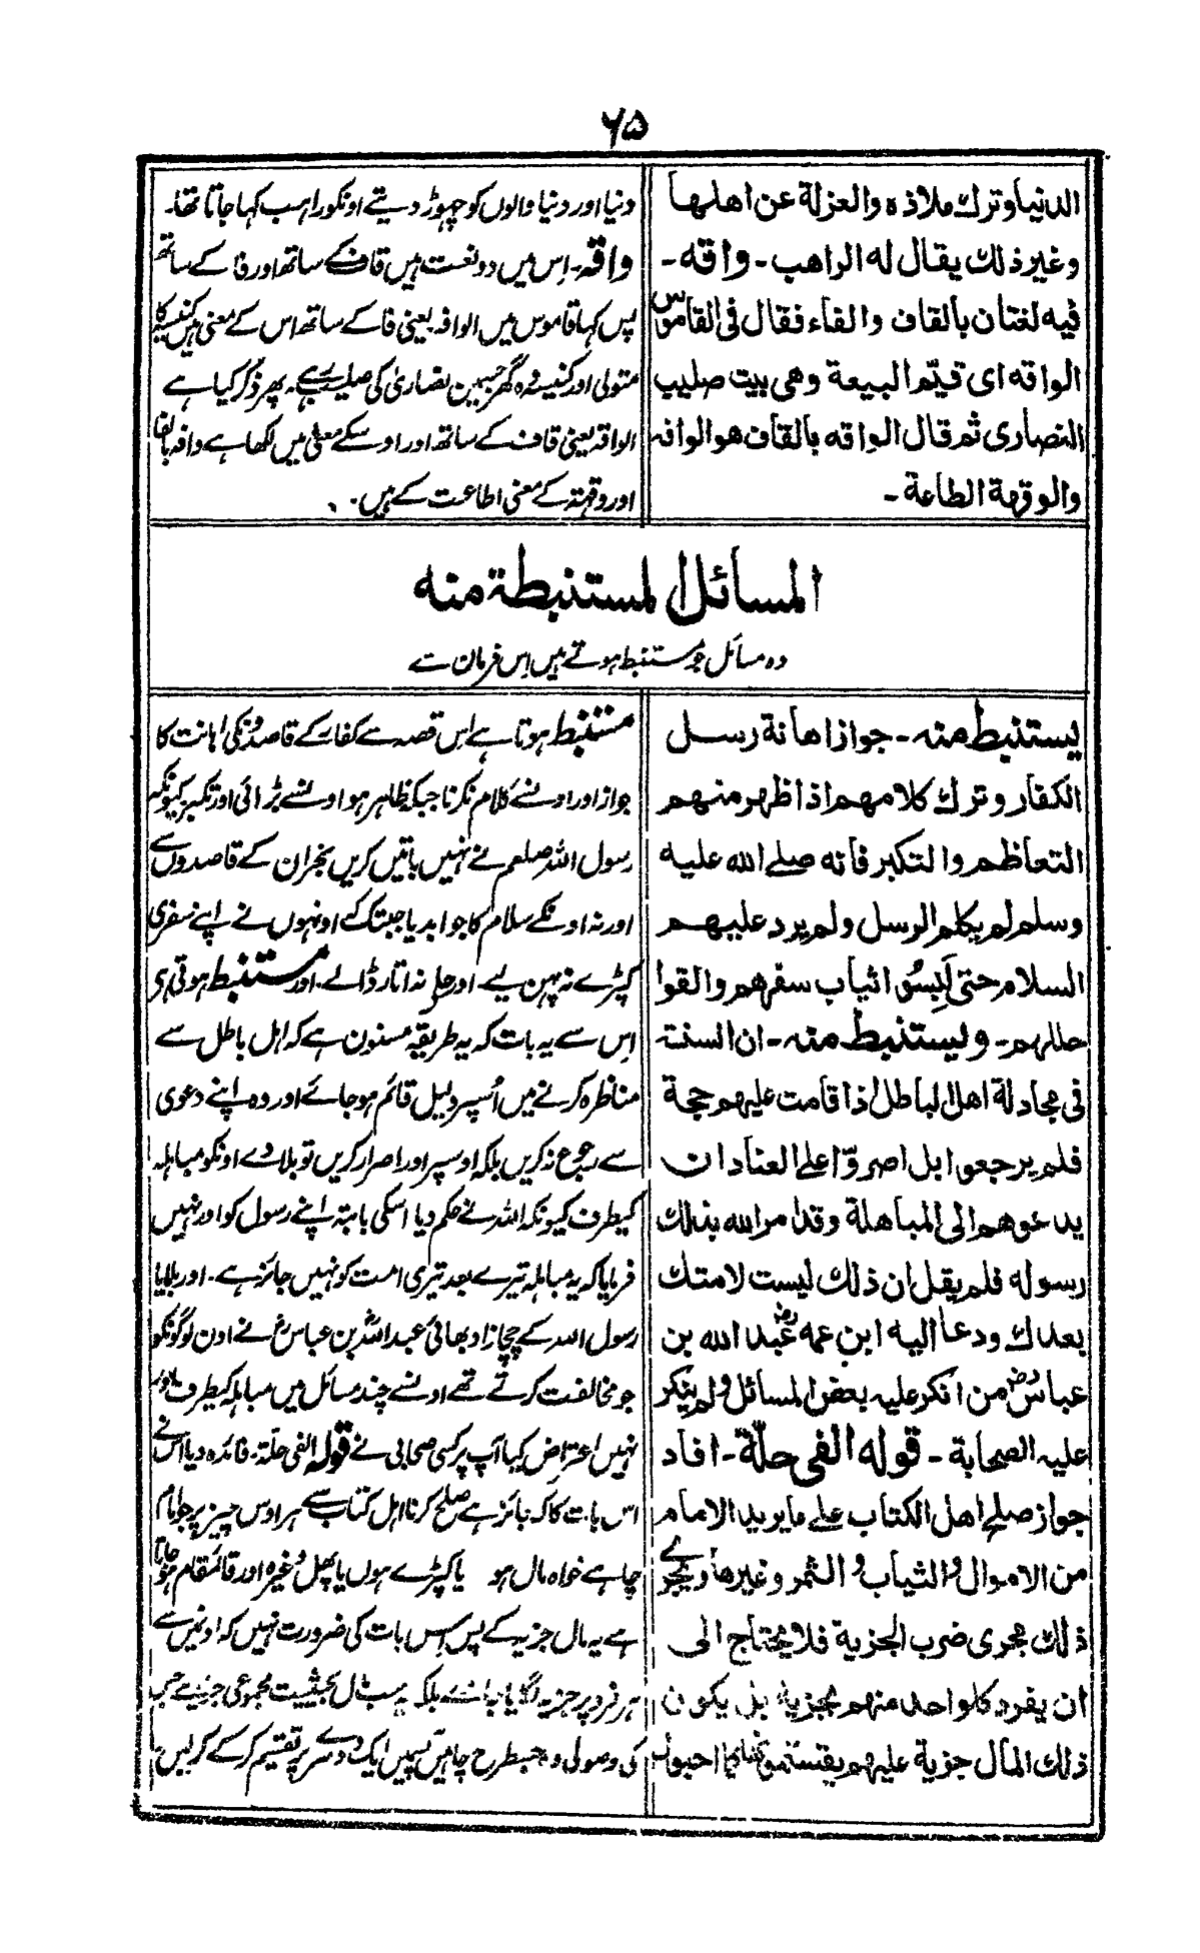 ۶۵
الدنيا وترك ملاذه والعزلة عن اهلها
وغير ذلك يقال له الراهب ـ واقه ـ
فيه لغتان بالقاف والفاء فقال فى القاموس
الوافه اى قيّم البيعة وهى بيت صليب
النصارى ثم قال الواقه بالقاف هو الوافه
والوقهة الطاعة ـ
دنیا اور دنیا والوں کو چہوڑ دیتے اونکو راہب کہا جاتا تھا۔
واقہ۔ اِس میں دو لغت ہیں قاف کے ساتھ اور فا کے ساتھ
پس کہا قاموس میں الوافہ یعنی فا کے ساتھ اس کے معنی ہیں کنیسہ کا
متولی اور کنیسہ وہ گھر جسمین نصاریٰ کی صلیب رہے۔ پھر ذکر کیا ہے
الواقہ یعنی قاف کے ساتھ اور اوسکے معنی میں لکھا ہے وافہ بالفا
اور وقہتہ کے معنی اطاعت کے ہیں۔
المسائل المستنبطة منه
وہ مسائل جو مستنبط ہوتے ہیں اِس فرمان سے
يستنبط منه ـ جواز اهانة رسل
الكفار وترك كلامهم اذا ظهر منهم
التعاظم والتكبر فانه صلے الله عليه
وسلم لم يكلم الرسل ولم يرد عليهم
السلام حتى لَبِسُوا ثياب سفرهم والقوا
حللهم ـ ويستنبط منه ـ ان السنة
فى مجادلة اهل الباطل اذا قامت عليهم حجة
فلم يرجعوا بل اصروّا على العناد ان
يدعوهم الى المباهلة وقد امر الله بذلك
رسوله فلم يقل ان ذلك ليست لامتك
بعدك ودعا اليه ابن عمه عبد الله بن
عباس رض من انكر عليه بعض المسائل ولم ينكر
عليه الصحابة ـ قوله الفى حلّة ـ افاد
جواز صلح اهل الكتاب علے ما يريد الامام
من الاموال والثياب والثمر وغيرها ويجرے
ذلك مجرى ضرب الجزية فلا يحتاج الى
ان يفرد كلواحد منهم بجزية بل يكون
ذلك المال جزية عليهم يقتسمونها كما احبوا
مستنبط ہوتا ہے اِس قصہ سے کفار کے قاصدونکی اہانت کا
جواز اور اونسے کلام نکرنا جبکہ ظاہر ہو اونسے بڑائی اور تکبر کیونکہ
رسول اللہ صلعم نے نہیں باتیں کریں نجران کے قاصدوں سے
اور نہ اونکے سلام کا جواب دیا جبتک کے اونہوں نے اپنے سفری
کپڑے نہ پہن لیے اور حلے نہ اتار ڈالے۔ اور مستنبط ہوتی ہی
اِس سے یہ بات کہ یہ طریقہ مسنون ہے کہ اہل باطل سے
مناظرہ کرنے میں اُسپر دلیل قائم ہو جائے اور وہ اپنے دعوی
سے رجوع نہ کریں بلکہ اوسپر اور اصرار کریں تو بلاوے اونکو مباہلہ
کیطرف کیونکہ اللہ نے حکم دیا اسکی بابتہ اپنے رسول کو اور نہیں
فرمایا کہ یہ مباہلہ تیرے بعد تیری امت کو نہیں جائز ہے۔ اور بلایا
رسول اللہ کے چچازاد بھائی عبداللہ بن عباس رض نے اون لوگونکو
جو مخالفت کرتے تھے اونسے چند مسائل میں مباہلہ کیطرف اور
نہیں اعتراض کیا آپ پر کسی صحابی نے قولہ الفی حلّة۔ فائدہ دیا اس نے
اس بات کا کہ جائز ہے صلح کرنا اہل کتاب سے ہر اوس چیز پر جو امام
چاہے خواہ مال ہو یا کپڑے ہوں یا پھل وغیرہ اور قائمقام ہو جاتا
ہے یہ مال جزیہ کے پس اِس بات کی ضرورت نہیں کہ اونمیں سے
ہر فرد پر جزیہ لگایا جائے بلکہ یہ سب مال بحیثیت مجموعی جزیہ ہے جس
کی وصولی وہ جسطرح چاہیں آپسمیں ایک دوسرے پر تقسیم کر کے کر لیں۔